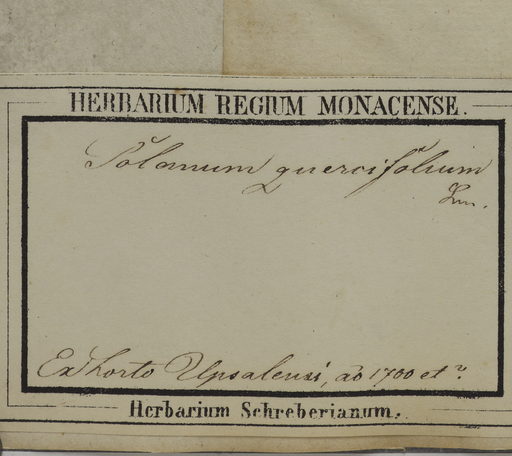 HERBARIUM REGIUM MONACENSE.
Solanum quercifolium
Lin.
Ex horto Upsalensi, ao 1700 et
Herbarium Schreberianum.